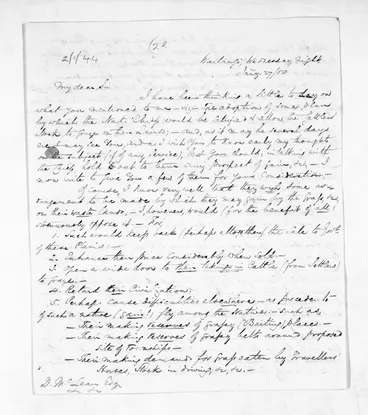 2/1/44
Waitangi, Wednesday Night
Jany. 29/50
My dear Sir
I have been thinking a little to day on
what you mentioned to me - viz. the adoption of some plan
by which the Nat. Chiefs would be satisfied to allow the Settlers'
Stock to graze on their lands; - and, as it may be several days
ere I may see You, and as I wish You to know early my thoughts
on the subject (if of any service), lest You should, in talking with
the Chiefs, hold out to them any prospect of gain, &c. - I
now write to give you a few of them for Your Consideration. -
Of course, I know very well that they might some ar-
rangement to be made by which they may gain by the Grass, &c,
on their waste lands, - I however, would (for the benefit of all)
strenuously oppose it. - For
1. Such would keep back (perhaps altogether) the sale to Govt.
of these Plains: -
2. Enhance their price considerably when sold: -
3. Open a wide door to their taking in Cattle (from Settlers)
to graze: -
4. Retard their Civilization: -
5. Perhaps cause difficulties elsewhere - as precedents
of such a nature (gain!) fly among the Natives: - such as,
- Their making reserves of Grassy (Baiting) places -
- Their making reserves of Grassy belts around proposed
site of townships -
- Their making demands for Grass eaten by Travellers'
Horses, Stock in driving, &c, &c. -
D. McLean Esq